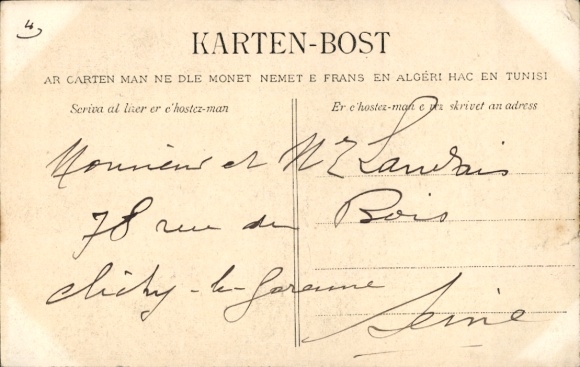 4
KARTEN-BOST
AR GARTEN MAN NE DLE MONET NEMET E FRANS EN ALGÉRI HAC EN TUNISI
Scriva al lizer er c'hostez-man
Er c'hostez-man e vez skrivet an adress
Monsieur et Mr Landais
78 rue du Bois
Clichy-la-Garenne
Seine